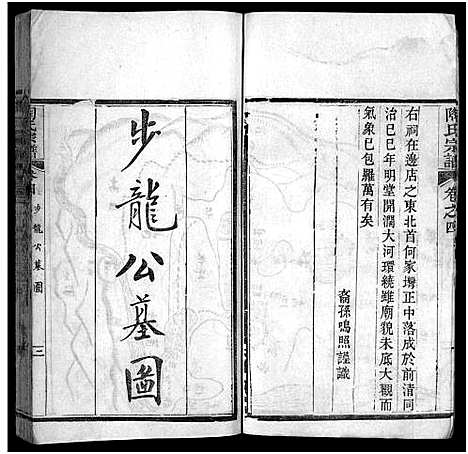 陶氏宗譜
卷之四
右祠在邊店之東北首何家塆正中落成於前清同
治巳巳年明堂開濶大河環繞雖廟貌未底大觀而
氣象已包羅萬有矣
裔孫鳴照謹識
步龍公墓圖
陶氏宗譜
卷之四
步龍公墓圖
三